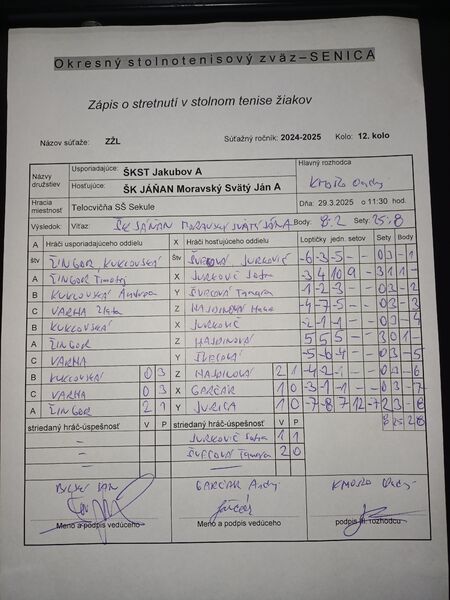 Okresný stolnotenisový zväz–SENICA
Zápis o stretnutí v stolnom tenise žiakov
Názov súťaže: ZŽL Súťažný ročník: 2024-2025 Kolo: 12. kolo
Názvy družstiev Usporiadajúce: ŠKST Jakubov A Hlavný rozhodca
Hosťujúce: ŠK JÁŇAN Moravský Svätý Ján A KMOŠKO
Hracia miestnosť Telocvičňa SŠ Sekule Dňa: 29.3.2025 o 11:30 hod.
Výsledok: Víťaz: ŠK JÁŇAN MORAVSKÝ SVÄTÝ JÁN A Body: 8:2 Sety: 25:8
A Hráči usporiadajúceho oddielu X Hráči hosťujúceho oddielu Loptičky jedn. setov Sety Body
štv ŽINGOR KUKLOVSKÁ Štv ŠVECOVÁ JURKOVIČ -6 -3 -5 - - 0 3 - 1
A ŽINGOR Timotej X JURKOVIČ -3 4 10 9 - 3 1 1 -
B KUKLOVSKÁ Y ŠVECOVÁ Tamara -1 -2 -3 - - 0 3 - 2
C VARMA Zlata Z MAJDINOVÁ -4 -7 -5 - - 0 3 - 3
B KUKLOVSKÁ X JURKOVIČ -2 -1 -4 - - 0 3 - 4
A ŽINGOR Z MAJDINOVÁ 5 5 5 - - 3 0 1 -
C VARMA Y ŠVECOVÁ -5 -6 -4 - - 0 3 - 5
B KUKLOVSKÁ 0 3 Z MAJDINOVÁ 2 1 -4 -2 - - 0 3 - 6
C VARMA 0 3 X GARČÁR 1 0 -3 -1 -1 - - 0 3 - 7
A ŽINGOR 2 1 Y JURICA 1 0 -7 -8 7 12 -7 2 3 - 8
striedaný hráč-úspešnosť V P striedaný hráč-úspešnosť V P 8 25 2 8
- JURKOVIČ 1 1
- ŠVECOVÁ Tamara 2 0
GARČÁR KMOŠKO
Meno a podpis vedúceho Meno a podpis vedúceho podpis hl. rozhodcu